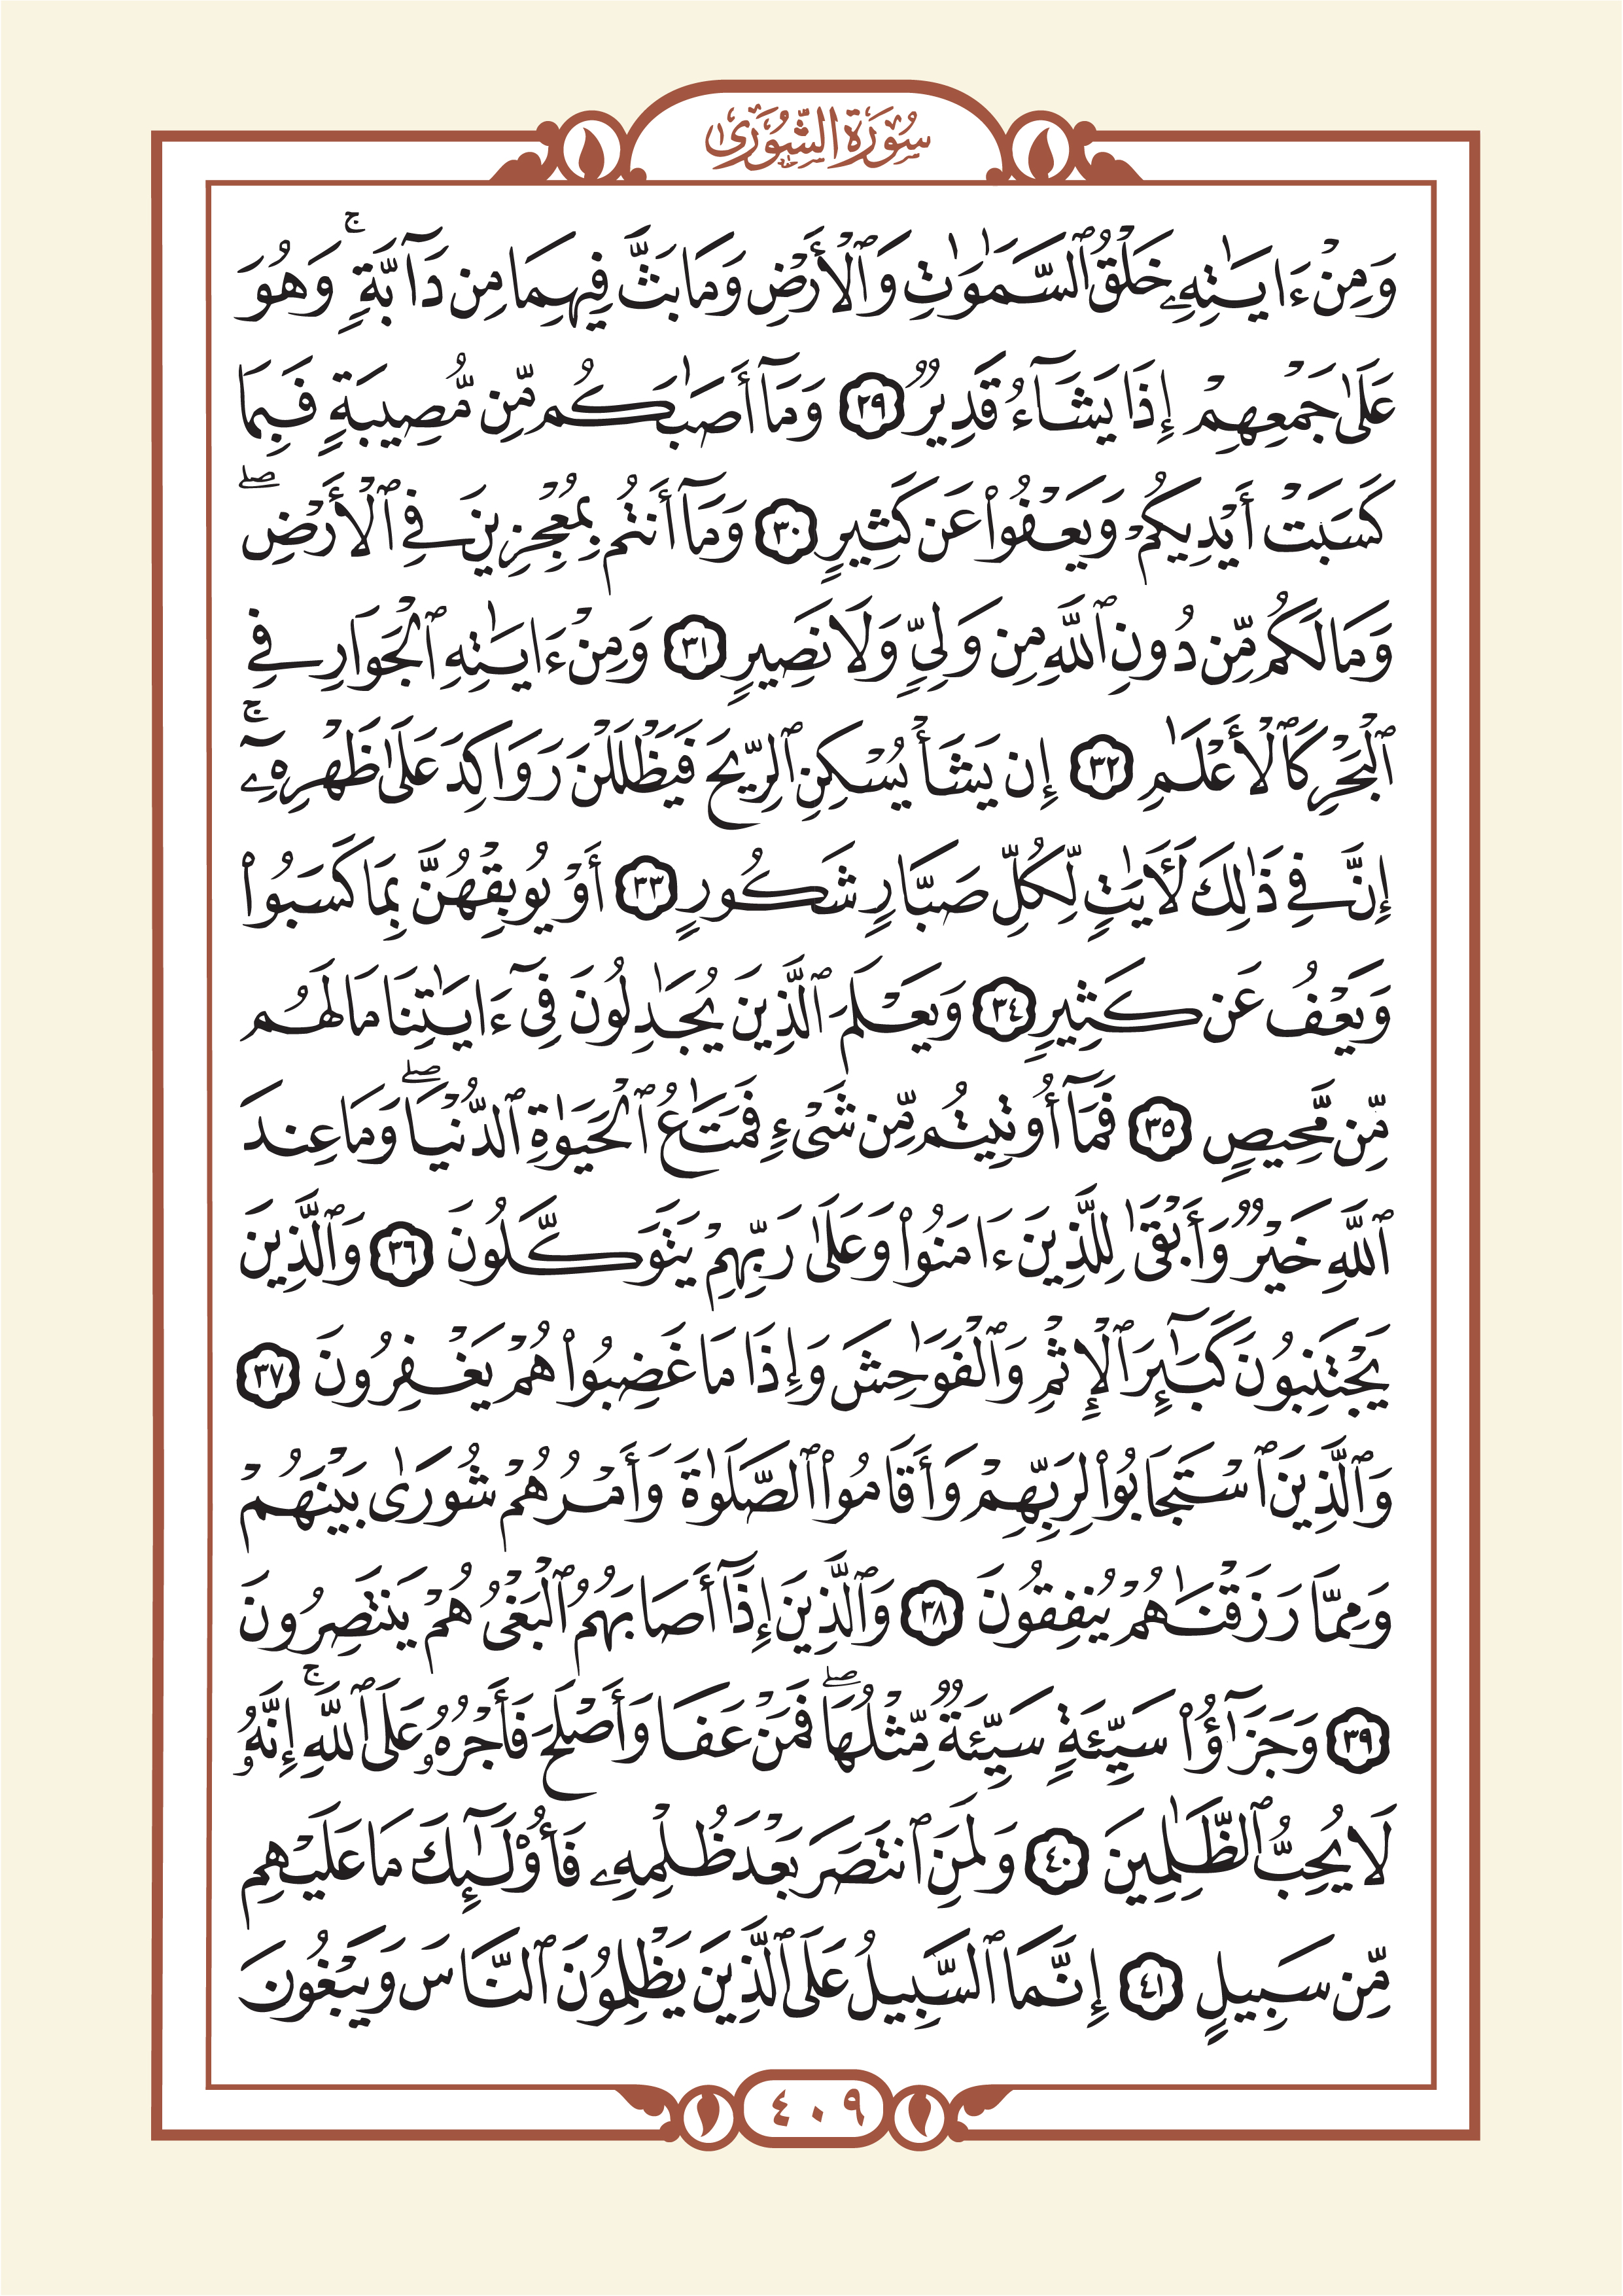 سُورَةُ الشُّورَىٰ
وَمِنْ ءَايَـٰتِهِۦ خَلْقُ ٱلسَّمَـٰوَٰتِ وَٱلْأَرْضِ وَمَا بَثَّ فِيهِمَا مِن دَآبَّةٍۚ وَهُوَ
عَلَىٰ جَمْعِهِمْ إِذَا يَشَآءُ قَدِيرٌ ٢٩ وَمَآ أَصَـٰبَكُم مِّن مُّصِيبَةٍ فَبِمَا
كَسَبَتْ أَيْدِيكُمْ وَيَعْفُوا۟ عَن كَثِيرٍ ٣٠ وَمَآ أَنتُم بِمُعْجِزِينَ فِى ٱلْأَرْضِۖ
وَمَا لَكُم مِّن دُونِ ٱللَّهِ مِن وَلِىٍّ وَلَا نَصِيرٍ ٣١ وَمِنْ ءَايَـٰتِهِ ٱلْجَوَارِ فِى
ٱلْبَحْرِ كَٱلْأَعْلَـٰمِ ٣٢ إِن يَشَأْ يُسْكِنِ ٱلرِّيحَ فَيَظْلَلْنَ رَوَاكِدَ عَلَىٰ ظَهْرِهِۦٓۚ
إِنَّ فِى ذَٰلِكَ لَـَٔايَـٰتٍ لِّكُلِّ صَبَّارٍ شَكُورٍ ٣٣ أَوْ يُوبِقْهُنَّ بِمَا كَسَبُوا۟
وَيَعْفُ عَن كَثِيرٍ ٣٤ وَيَعْلَمَ ٱلَّذِينَ يُجَـٰدِلُونَ فِىٓ ءَايَـٰتِنَا مَا لَهُم
مِّن مَّحِيصٍ ٣٥ فَمَآ أُوتِيتُم مِّن شَىْءٍ فَمَتَـٰعُ ٱلْحَيَوٰةِ ٱلدُّنْيَاۖ وَمَا عِندَ
ٱللَّهِ خَيْرٌ وَأَبْقَىٰ لِلَّذِينَ ءَامَنُوا۟ وَعَلَىٰ رَبِّهِمْ يَتَوَكَّلُونَ ٣٦ وَٱلَّذِينَ
يَجْتَنِبُونَ كَبَـٰٓئِرَ ٱلْإِثْمِ وَٱلْفَوَٰحِشَ وَإِذَا مَا غَضِبُوا۟ هُمْ يَغْفِرُونَ ٣٧
وَٱلَّذِينَ ٱسْتَجَابُوا۟ لِرَبِّهِمْ وَأَقَامُوا۟ ٱلصَّلَوٰةَ وَأَمْرُهُمْ شُورَىٰ بَيْنَهُمْ
وَمِمَّا رَزَقْنَـٰهُمْ يُنفِقُونَ ٣٨ وَٱلَّذِينَ إِذَآ أَصَابَهُمُ ٱلْبَغْىُ هُمْ يَنتَصِرُونَ
٣٩ وَجَزَٰٓؤُا۟ سَيِّئَةٍ سَيِّئَةٌ مِّثْلُهَاۖ فَمَنْ عَفَا وَأَصْلَحَ فَأَجْرُهُۥ عَلَى ٱللَّهِۚ إِنَّهُۥ
لَا يُحِبُّ ٱلظَّـٰلِمِينَ ٤٠ وَلَمَنِ ٱنتَصَرَ بَعْدَ ظُلْمِهِۦ فَأُو۟لَـٰٓئِكَ مَا عَلَيْهِم
مِّن سَبِيلٍ ٤١ إِنَّمَا ٱلسَّبِيلُ عَلَى ٱلَّذِينَ يَظْلِمُونَ ٱلنَّاسَ وَيَبْغُونَ
٤٠٩